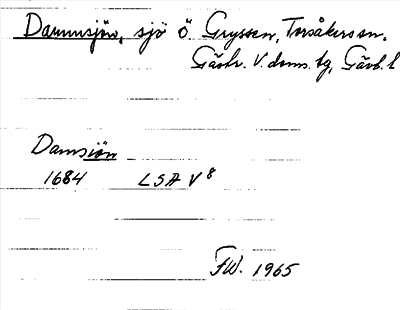 Dammsjön, sjö Ö Gryssen, Torsåkers sn,
Gästr. V. doms. tg, Gävb. l
Damsiön
1684 LSA V 8
FW. 1965